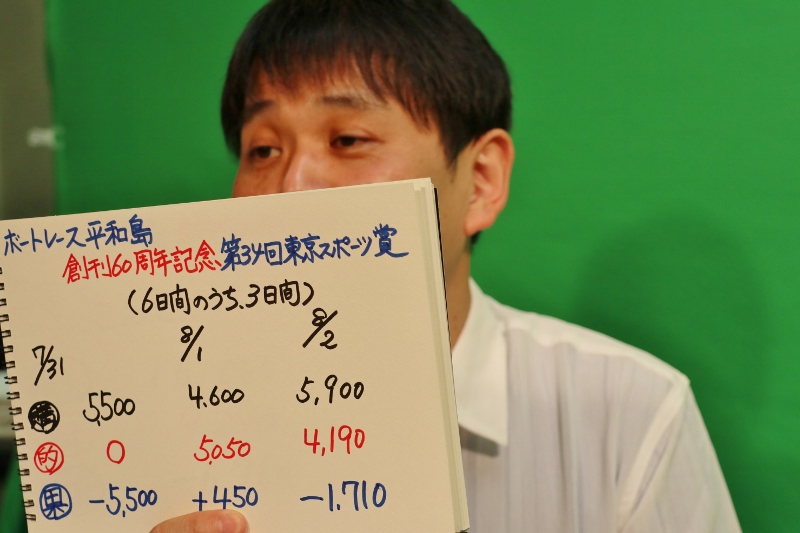 ボートレース平和島
創刊60周年記念、第34回東京スポーツ賞
(6日間のうち、3日間)
7/31 8/1 8/2
5,500 4,600 5,900
的 0 5,050 4,190
果 -5,500 +450 -1,710